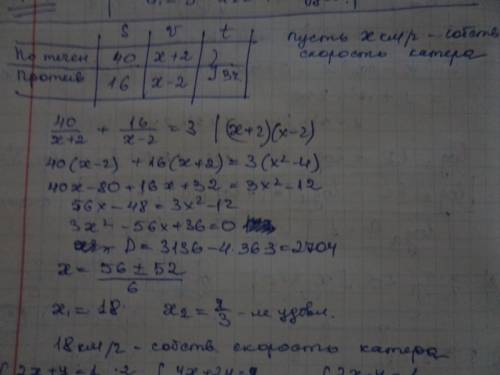 S V t
По течен 40 x+2 } 3ч.
Против 16 x-2
пусть x км/ч - собств
скорость катера
40/(x+2) + 16/(x-2) = 3 |(x+2)(x-2)
40(x-2) + 16(x+2) = 3(x²-4)
40x-80+16x+32 = 3x²-12
56x-48 = 3x²-12
3x²-56x+36=0
D = 3136-4·36·3=2704
x = (56 ± 52)/6
x₁ = 18 x₂ = 2/3 - не удовл.
18 км/ч - собств. скорость катера